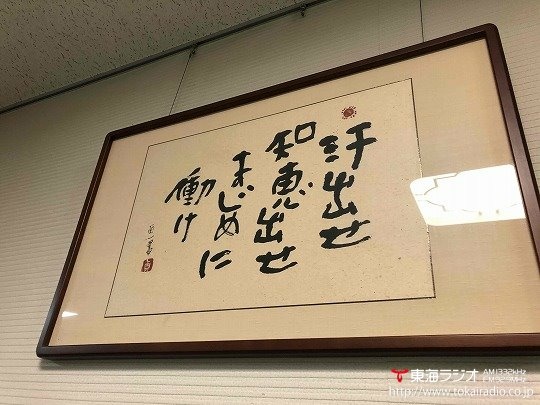 汗出せ
知恵出せ
まじめに
働け
東海ラジオ AM1332kHz
FM92.9MHz
http://www.tokairadio.co.jp